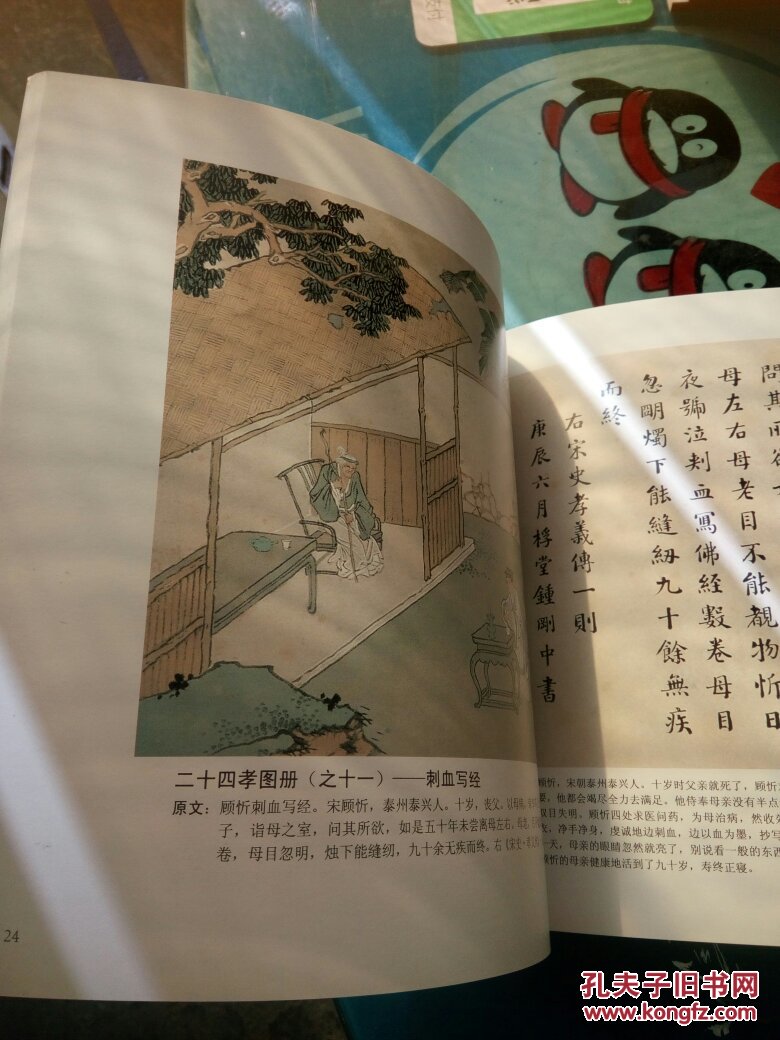 二十四孝图册（之十一）——刺血写经
原文：顾忻刺血写经。宋顾忻，泰州泰兴人。十岁，丧父，以母
子，诣母之室，问其所欲，如是五十年未尝离母左右，母
卷，母目忽明，烛下能缝纫，九十余无疾而终。右《宋史
24
問其所欲
母左右母老目不能覩物忻日
夜號泣刺血寫佛經數卷母目
忽明燭下能縫紉九十餘無疾
而終
右宋史孝義傳一則
庚辰六月桴堂鍾剛中書
顾忻，宋朝泰州泰兴人。十岁时父亲就死了，顾忻
要，他都会竭尽全力去满足。他侍奉母亲没有半点
双目失明。顾忻四处求医问药，为母治病，然收效
衣，净手净身，虔诚地边刺血，边以血为墨，抄写
一天，母亲的眼睛忽然就亮了，别说看一般的东西
顾忻的母亲健康地活到了九十岁，寿终正寝。
孔夫子旧书网
www.kongfz.com